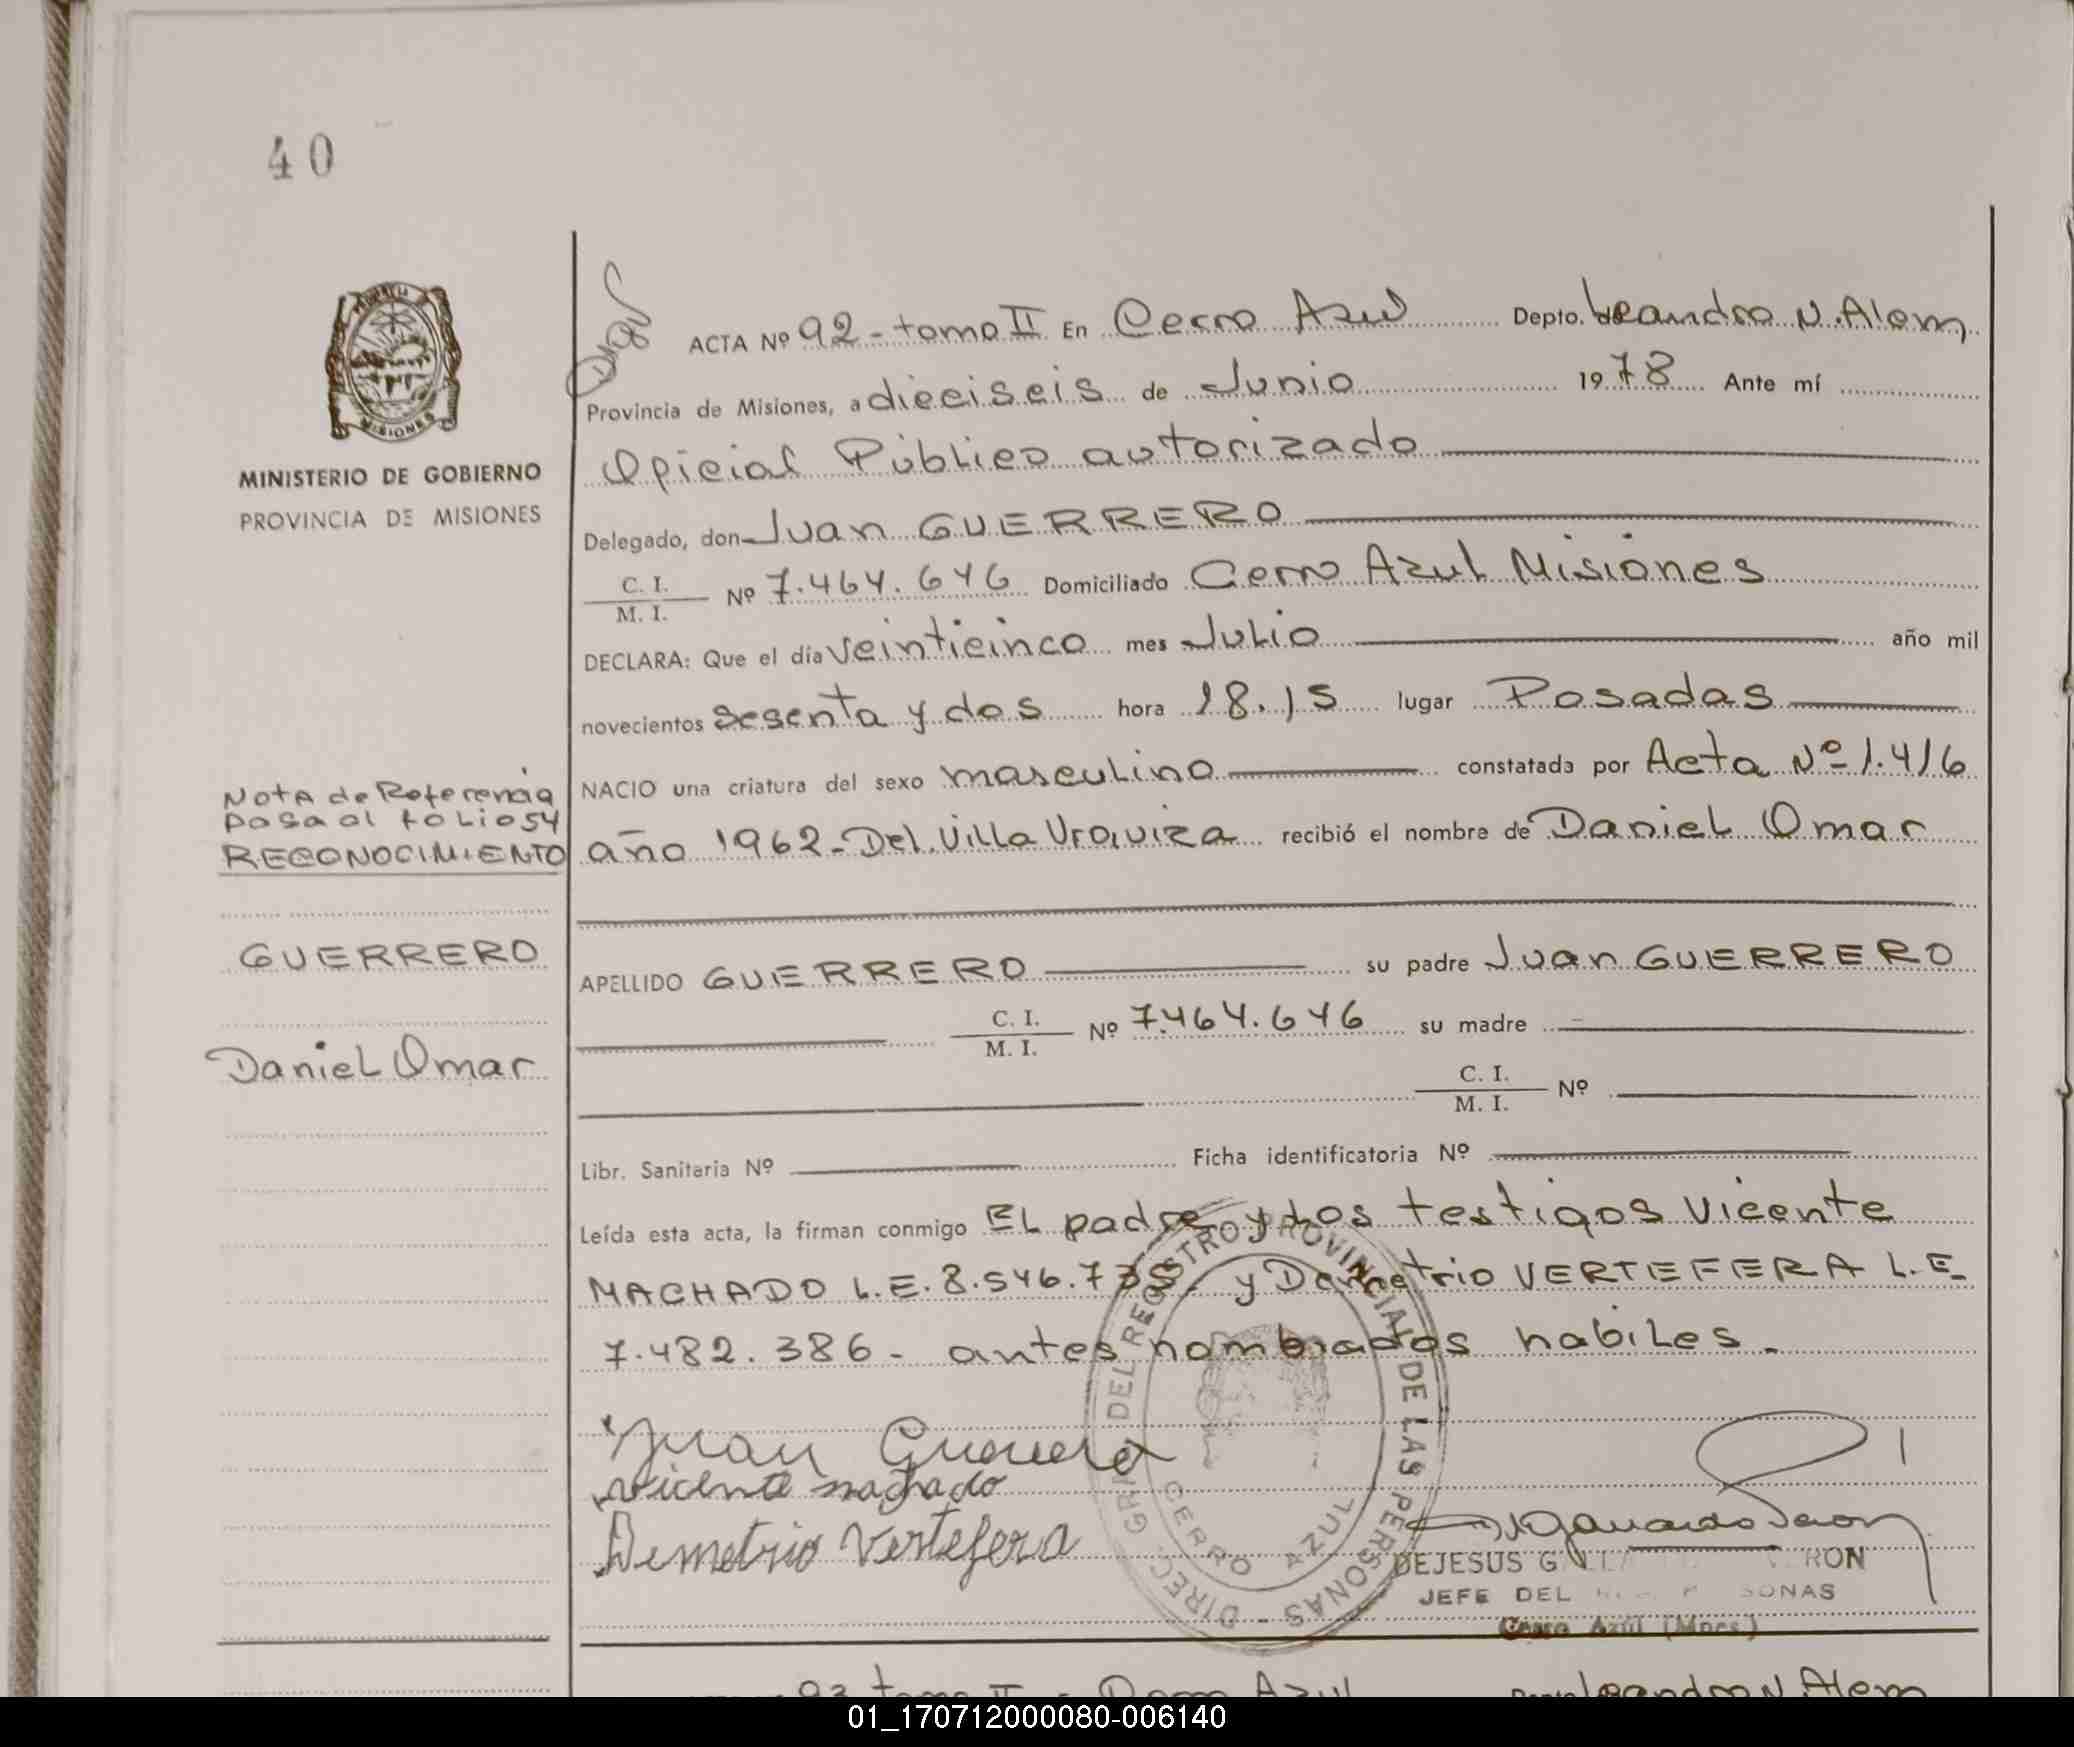 40
ACTA Nº 92 - tomo II En Cerro Azul Depto. Leandro N. Alem
Provincia de Misiones, a dieciseis de Junio 1978 Ante mí
Oficial Público autorizado
Delegado, don Juan GUERRERO
C. I.
M. I. Nº 7.464.646 Domiciliado Cerro Azul Misiones
DECLARA: Que el día veinticinco mes Julio año mil
novecientos sesenta y dos hora 18.15 lugar Posadas
NACIO una criatura del sexo masculino constatada por Acta Nº 1.416
año 1962 - Del. Villa Urquiza recibió el nombre de Daniel Omar
APELLIDO GUERRERO su padre Juan GUERRERO
C. I.
M. I. Nº 7.464.646 su madre
C. I.
M. I. Nº
Libr. Sanitaria Nº Ficha identificatoria Nº
Leída esta acta, la firman conmigo EL padre y Los testigos Vicente
MACHADO L.E. 8.546.735 y Demetrio VERTEFERA L.E.
7.482.386 - antes nombrados habiles.
Juan Guerrero
Vicente machado
Demetrio Vertefera
DEJESUS G RON
JEFE DEL SONAS
Cerro Azul (Mnes.)
DIREC. GRAL. DEL REGISTRO PROVINCIAL DE LAS PERSONAS -
CERRO AZUL
MISIONES
MINISTERIO DE GOBIERNO
PROVINCIA DE MISIONES
Nota de Referencia
pasa al folio 54
RECONOCIMIENTO
GUERRERO
Daniel Omar
93 tomo II - Azul Leandro N. Alem
01_170712000080-006140